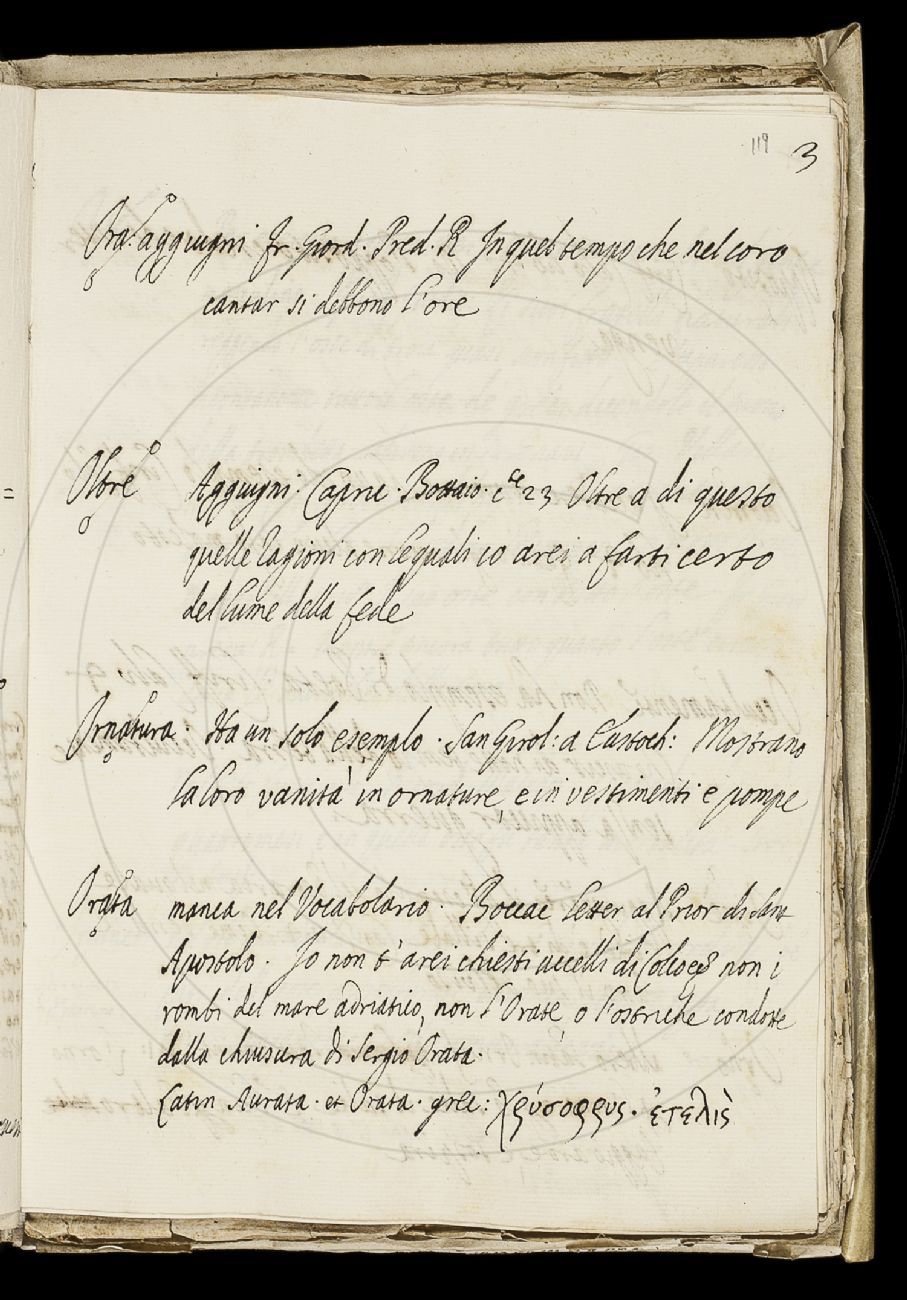 119 3
Ora. aggiugni Fr. Giord. Pred. R In quel tempo che nel coro
cantar si debbono l'ore
Oltre Aggiugni. Capric. Bottaio. 23 Oltre a di questo
quelle ragioni con le quali io arei a farti certo
del lume della fede
Ornatura. Ha un solo esemplo. San Girol: a Eustoch: Mostrano
la loro vanità in ornature, e in vestimenti e pompe
Orata manca nel Vocabolario. Boccac letter al Prior di Sant
Apostolo. Io non t'arei chiesti uccelli di Colco, non i
rombi del mare adriatico, non l'Orate, o l'ostriche condotte
dalla chiusura di Sergio Orata.
Latin Aurata. et Orata. grec: χρύσοφρυς. ἐτελὶς